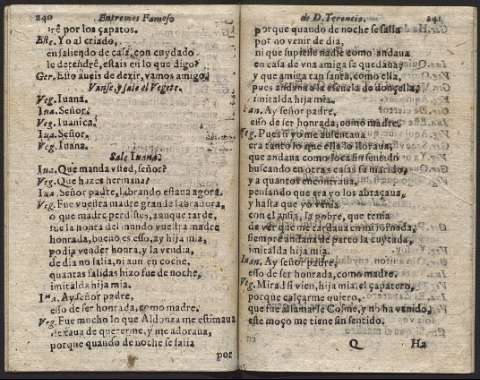 240 Entremes Famoso
rè por los çapatos.
Est. Yo al criado,
en saliendo de casa, con cuydado
le detendrè, estais en lo que digo?
Ger. Esto aueis de dezir, vamos amigo.
Vanse, y sale el Vegete.
Veg. Iuana.
Iua. Señor.
Veg. Iuanica.
Iua. Señor.
Veg. Iuana.
Sale Iuana.
Iua. Que manda vsted, señor?
Veg. Que hazes hermana?
Iua. Señor padre, labrando estaua agora.
Veg. Fue vuestra madre gran labradora,
o que madre perdistes, aunque tarde,
fue la honra del mundo vuestra madre
honrada, bueno es esso, ay hija mia,
podia vender honra, y la vendia,
de dia no salia, ni aun en coche,
quantas salidas hizo fue de noche,
imitalda hija mia.
Iua. Ay señor padre,
esso de ser honrada, como madre.
Veg. Fue mucho lo que Aldonça me estimaua
dexaua de quererme, y me adoraua,
porque quando de noche se salia
por
de D. Terencio. 241
porque quando de noche se salia
por no venir de dia,
ni que supiesse nadie como andaua
en casa de vna amiga se quedaua,
y que amiga tan santa, como ella,
pues andaua a le escuela de donçella,
imitalda hija mia.
Iuan. Ay señor padre,
esso de ser honrada, como madre.
Veg. Pues si yo me ausentaua
era tanto lo que ella lo lloraua,
que andaua como loca sin sentido
buscando en otras casas su marido,
y a quantos encontraua,
pensando que era yo los abraçaua,
y hasta que yo venia
con el ansia, la pobre, que tenia
de ver que me cardaua en mi jornada,
siempre andaua de parto la cuytada,
imitalda hija mia.
Iuan. Ay señor padre,
esso de ser honrada, como madre.
Veg. Mira si vien, hija mia, el çapatero,
porque calçarme quiero,
que fue a llamarle Cosme, y no ha venido,
este moço me tiene sin sentido.
Q Ha